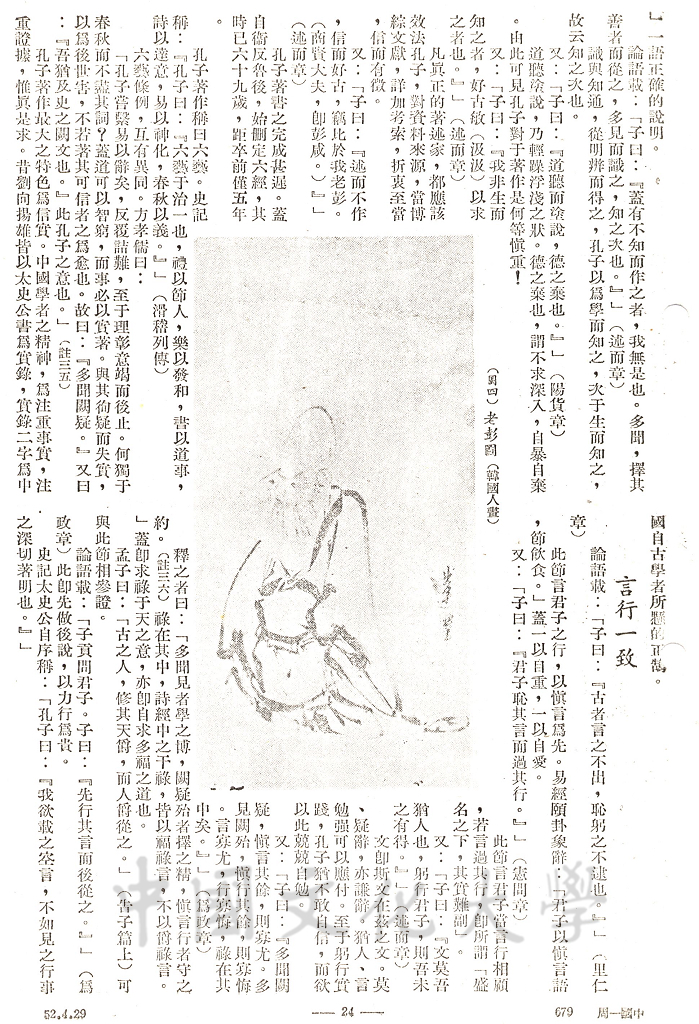 』一語正確的說明。
論語載：「子曰：『蓋有不知而作之者，我無是也。多聞，擇其
善者而從之，多見而識之，知之次也。』」（述而章）
識與知通，從明辨而得之，孔子以爲學而知之，次于生而知之，
故云知之次也。
又：「子曰：『道聽而塗說，德之棄也。』」（陽貨章）
道聽塗說，乃輕躁浮淺之狀。德之棄也，謂不求深入，自暴自棄
。由此可見孔子對于著作是何等愼重！
又：「子曰：『我非生而
知之者，好古敏（汲汲）以求
之者也。』」（述而章）
凡眞正的著述家，都應該
效法孔子，對資料來源，當博
綜文獻，詳加考索，折衷至當
，信而有徵。
又：「子曰：『述而不作
，信而好古，竊比於我老彭。
（商賢大夫，卽彭咸。）』」
（述而章）
孔子著書之完成甚遲。蓋
自衞反魯後，始刪定六經，其
時已六十九歲，距卒前僅五年
。
孔子著作稱曰六藝。史記
稱：『孔子曰：『六藝于治一也，禮以節人，樂以發和，書以道事，
詩以達意，易以神化，春秋以義。』」（滑稽列傳）
六藝條例，互有異同。方孝儒曰：
「孔子嘗繫易以辭矣，反覆詰難，至于理彰意竭而後止。何獨于
春秋而不盡其詞？蓋道可以智窮，而事必以實著。與其徇疑而失實，
以爲後世害，不若著其可信者之爲愈也。故曰：『多聞闕疑。』又曰
：『吾猶及史之闕文也。』此孔子之意也。」（註三五）
孔子著作最大之特色爲信實。中國學者之精神，爲注重事實，注
重證據，惟眞是求。昔劉向揚雄皆以太史公書爲實錄，實錄二字爲中
（圖四）老彭圖（韓國人畫）
國自古學者所懸的正鵠。
言行一致
論語載：「子曰：『古者言之不出，恥躬之不逮也。』」（里仁
章）
此節言君子之行，以愼言爲先。易經頤卦象辭：「君子以愼言語
，節飲食。」蓋一以自重，一以自愛。
又：「子曰：『君子恥其言而過其行。』」（憲問章）
此節言君子當言行相顧
，若言過其行，卽所謂「盛
名之下，其實難副」。
又：「子曰：『文莫吾
猶人也，躬行君子，則吾未
之有得。』」（述而章）
文卽斯文在茲之文。莫
、疑辭，亦謙辭。猶人、言
勉强可以應付。至于躬行實
踐，孔子猶不敢自信，而欲
以此兢兢自勉。
又：「子曰：『多聞闕
疑，愼言其餘，則寡尤。多
見闕殆，愼行其餘，則寡悔
。言寡尤，行寡悔，祿在其
中矣。』」（爲政章）
釋之者曰：「多聞見者學之博，闕疑殆者擇之精，愼言行者守之
約。（註三六）祿在其中，詩經中之干祿，皆以福祿言，不以爵祿言。
」蓋卽求祿于天之意，亦卽自求多福之道也。
孟子曰：「古之人，修其天爵，而人爵從之。」（告子篇上）可
與此節相參證。
論語載：「子貢問君子。子曰：『先行其言而後從之。』」（爲
政章）此卽先做後說，以力行爲貴。
史記太史公自序稱：「孔子曰：『我欲載之空言，不如見之行事
之深切著明也。』」
中國文化大學
52.4.29
— 24 —
679
中國一周